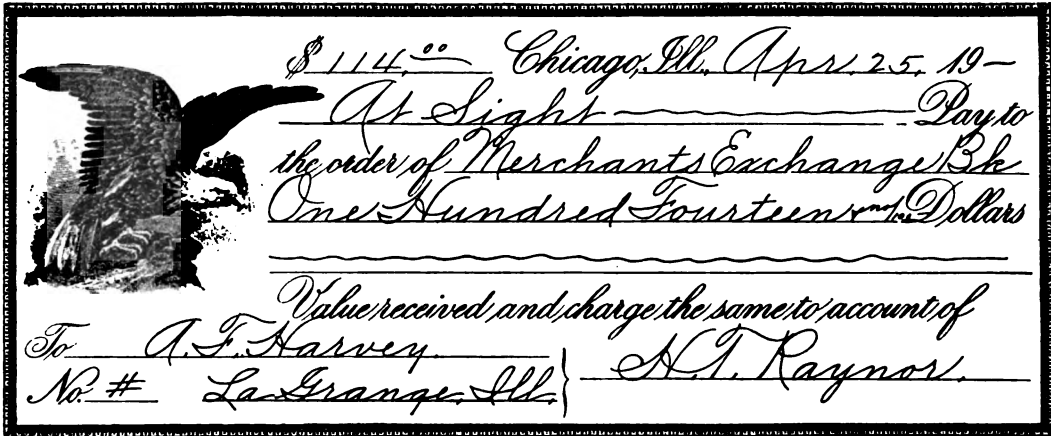 $ 114.00 Chicago, Ill., Apr. 25, 19–
At Sight Pay to
the order of Merchants Exchange Bk
One Hundred Fourteen & no/100 Dollars
Value received and charge the same to account of
To A. F. Harvey
No. # La Grange, Ill. H. T. Raynor.